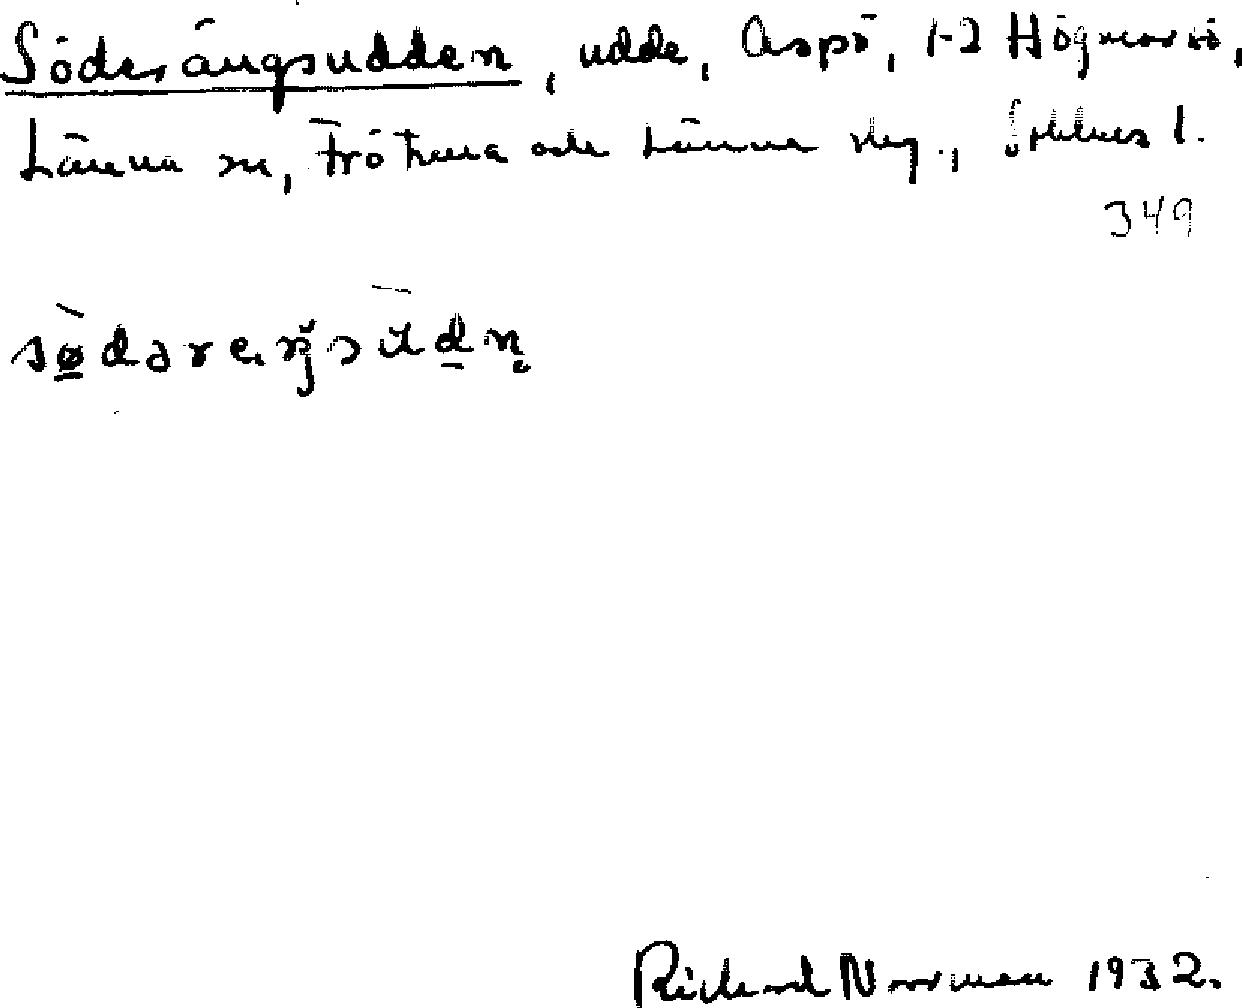 Söderängsudden, udde, Aspö, 1-2 Högmarsö,
Länna sn, Frötuna och Länna skg., Sthlms l.
349
Richard Norrman 1932.